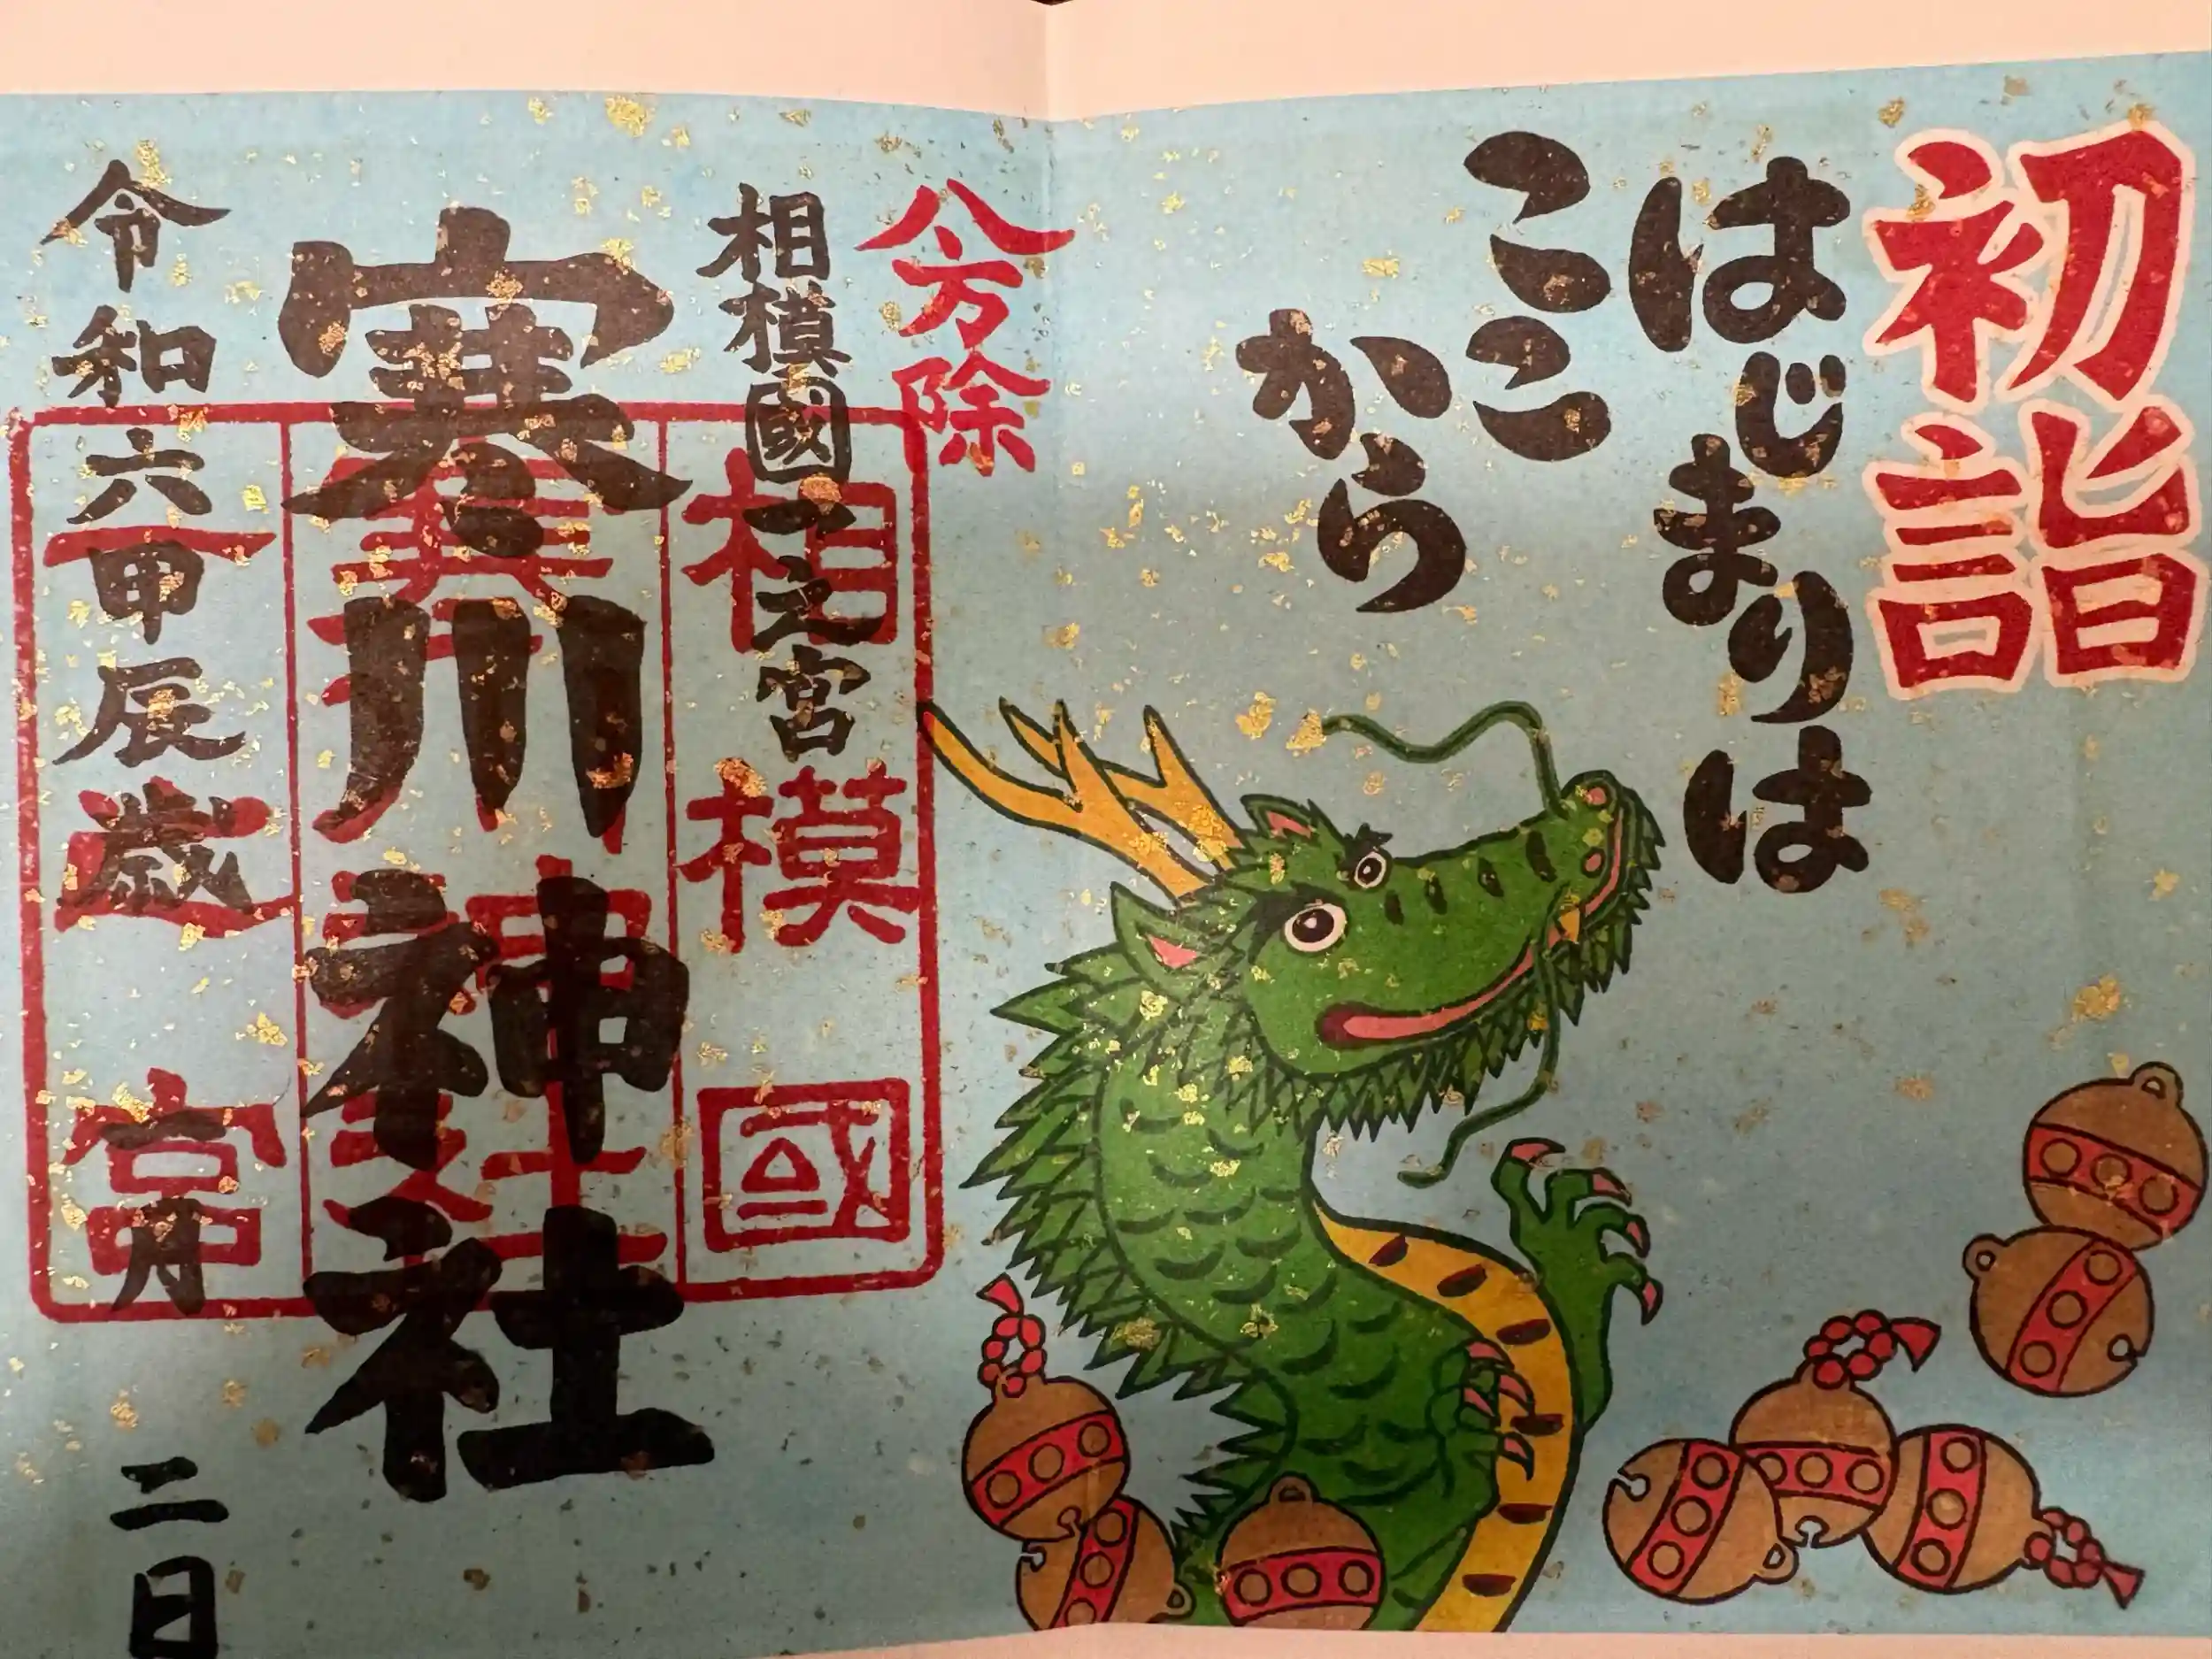 初詣
はじまりは
ここ
から
八方除
相模國一之宮
寒川神社
令和六甲辰歳 月二日
相模國
寒川神社
一之宮